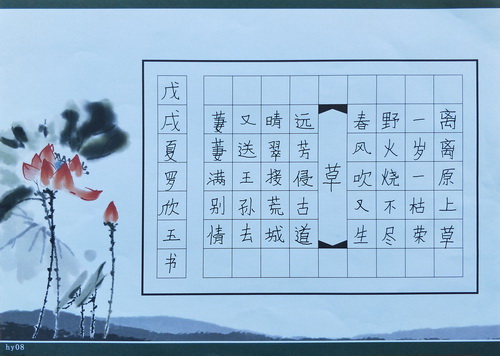 离离原上草
一岁一枯荣
野火烧不尽
春风吹又生
草
远芳侵古道
晴翠接荒城
又送王孙去
萋萋满别情
戊戌夏罗欣玉书
hy08